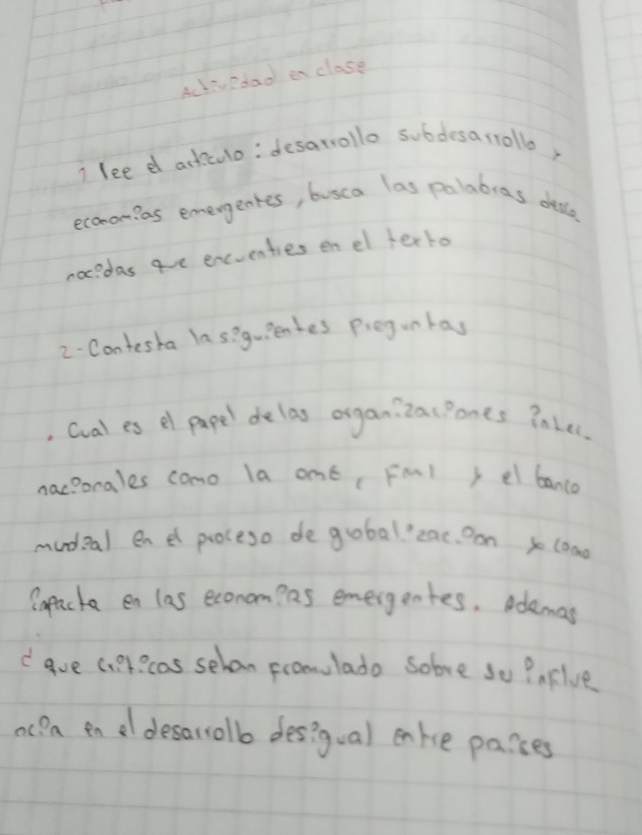 Actividad en clase
1 lee el articulo: desarrollo subdesarrollo y
economias emergentes, busca las palabras desco
nocidas que encuentres en el texto
2-Contesta la siguientes preguntas
. Cual es el papel de las organizaciones inter-
nacionales como la omc, FMI y el banco
mundial en el proceso de globalizacion y como
impacta en las economias emergentes. Ademas
¿que criticas sehan fromulado sobre su influe
ncia en el desarrollo desigual entre paises